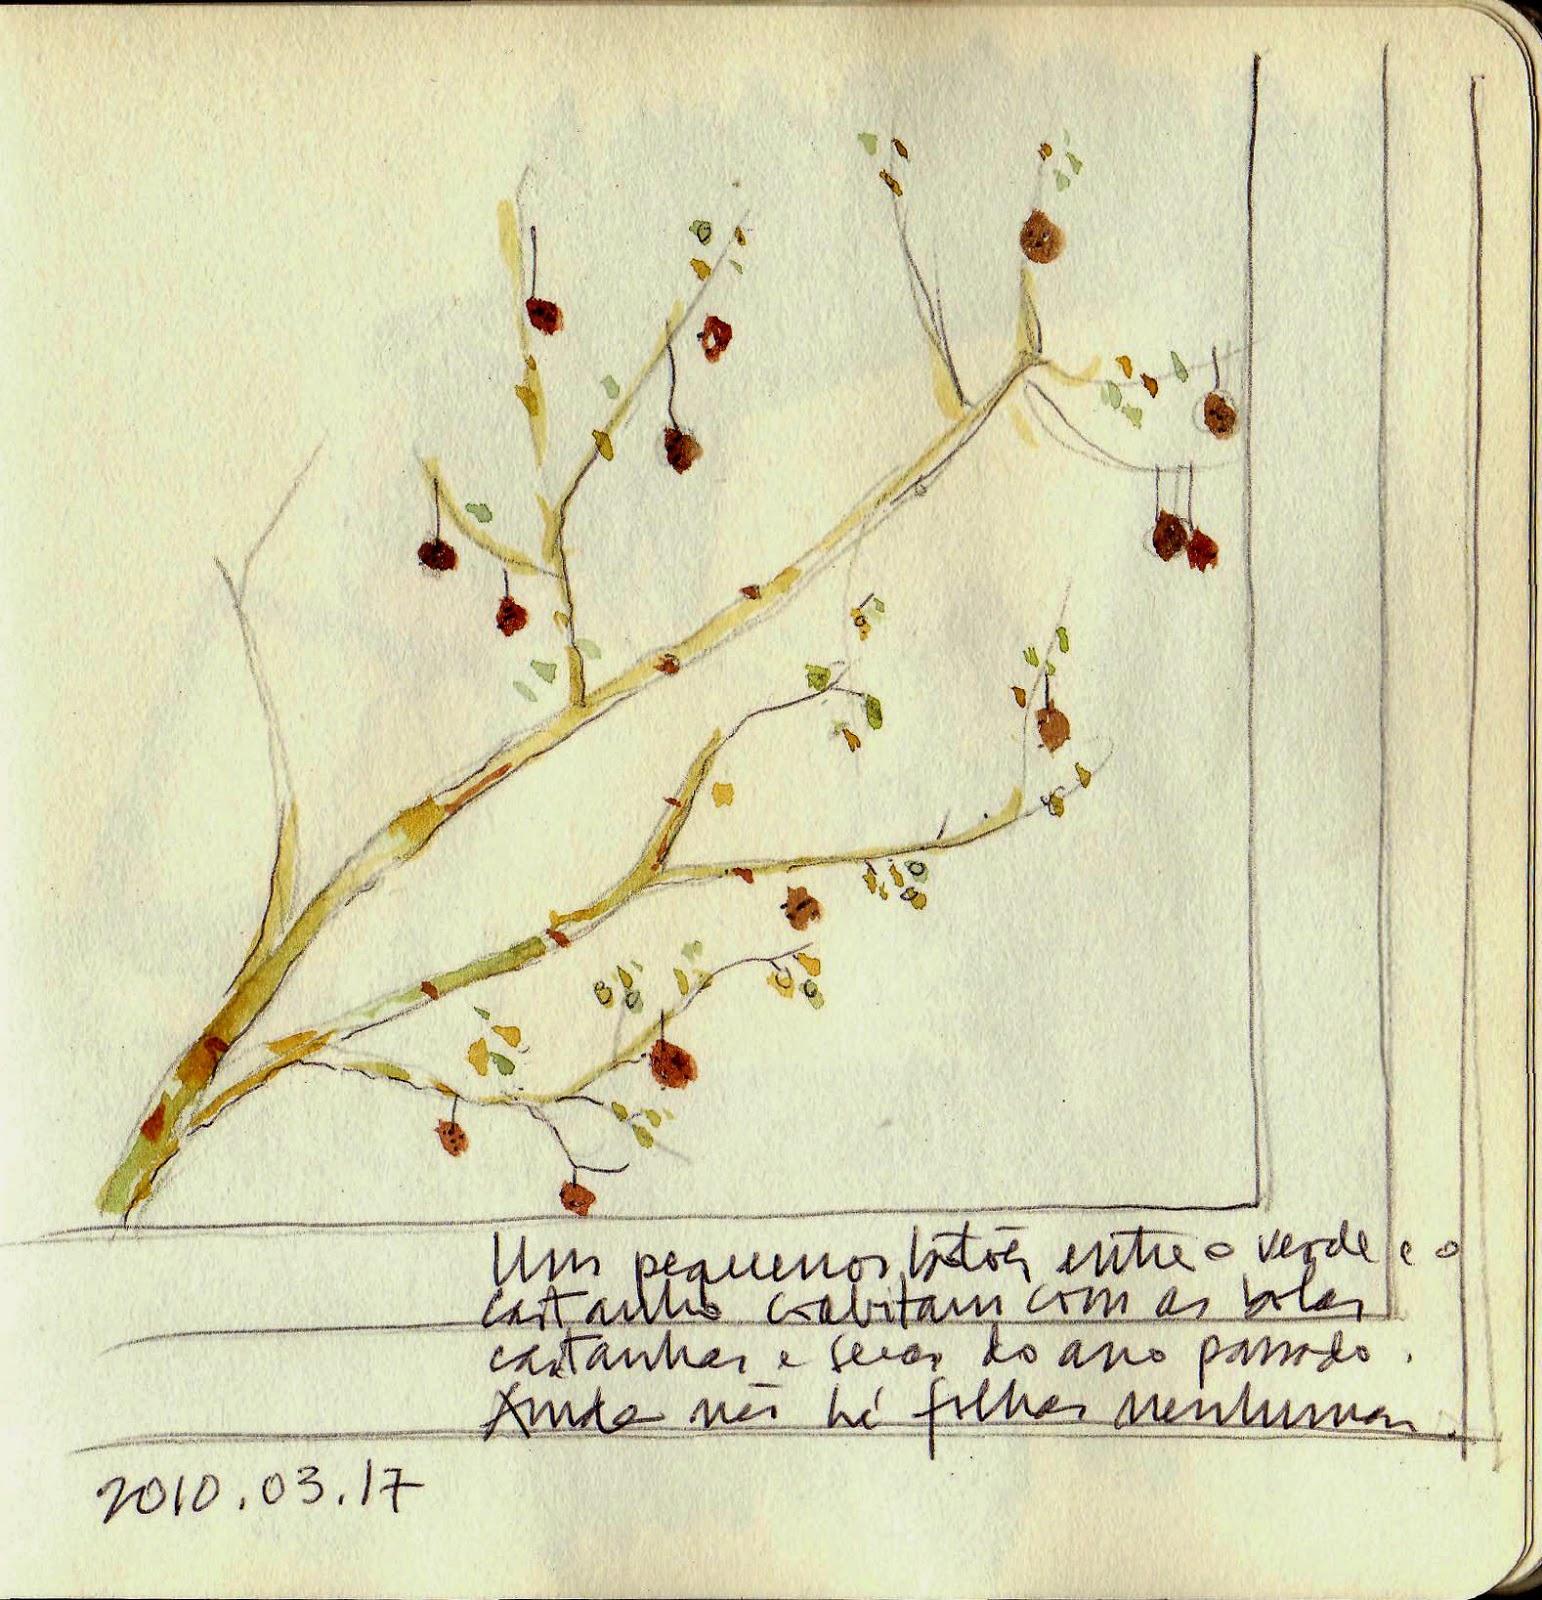 Uns pequenos botões entre o verde e o
castanho coabitam com as bolas
castanhas e secas do ano passado.
Ainda não há folhas nenhumas.
2010.03.17